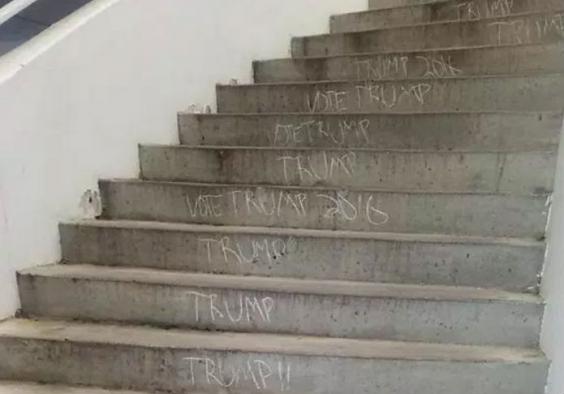 TRUMP
TRUMP
TRUMP 2016
VOTE TRUMP
VOTE TRUMP
TRUMP
VOTE TRUMP 2016
TRUMP
TRUMP
TRUMP!!